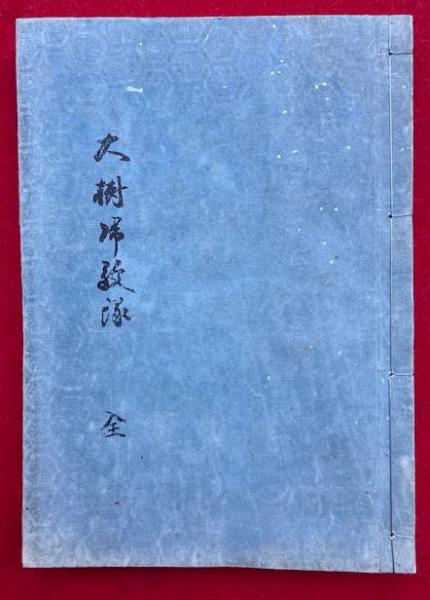 大樹帰敬録　全